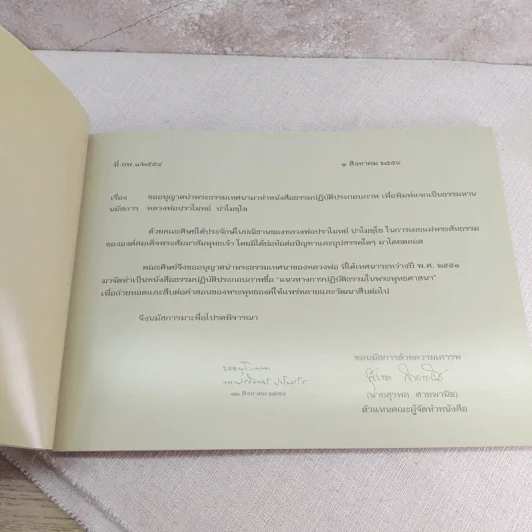 ที่ ภพ. ๑/๒๕๕๔
๑ สิงหาคม ๒๕๕๔
เรื่อง ขออนุญาตนำพระธรรมเทศนามาทำหนังสือธรรมปฏิบัติประกอบภาพ เพื่อพิมพ์แจกเป็นธรรมทาน
นมัสการ หลวงพ่อปราโมทย์ ปาโมชฺโช
ด้วยคณะศิษย์ได้ประจักษ์ในปณิธานของหลวงพ่อปราโมทย์ ปาโมชฺโช ในการเผยแผ่พระสัทธรรม
ขององค์สมเด็จพระสัมมาสัมพุทธเจ้า โดยมิได้ย่อท้อต่อปัญหาและอุปสรรคใดๆ มาโดยตลอด
คณะศิษย์จึงขออนุญาตนำพระธรรมเทศนาของหลวงพ่อ ที่ได้เทศนาระหว่างปี พ.ศ. ๒๕๕๑
มาจัดทำเป็นหนังสือธรรมปฏิบัติประกอบภาพชื่อ “แนวทางการปฏิบัติธรรมในพระพุทธศาสนา”
เพื่อถ่ายทอดและสืบต่อคำสอนของพระพุทธองค์ให้แพร่หลายและวัฒนาสืบต่อไป
จึงนมัสการมาเพื่อโปรดพิจารณา
ขอนมัสการด้วยความเคารพ
(นายสุรพล สายพานิช)
ตัวแทนคณะผู้จัดทำหนังสือ
สิงหาคม ๒๕๕๔